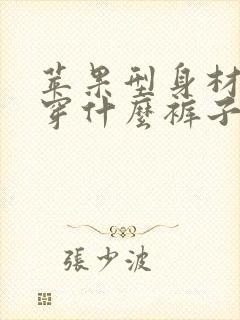 苹果型身材
穿什麼裤子
張少波